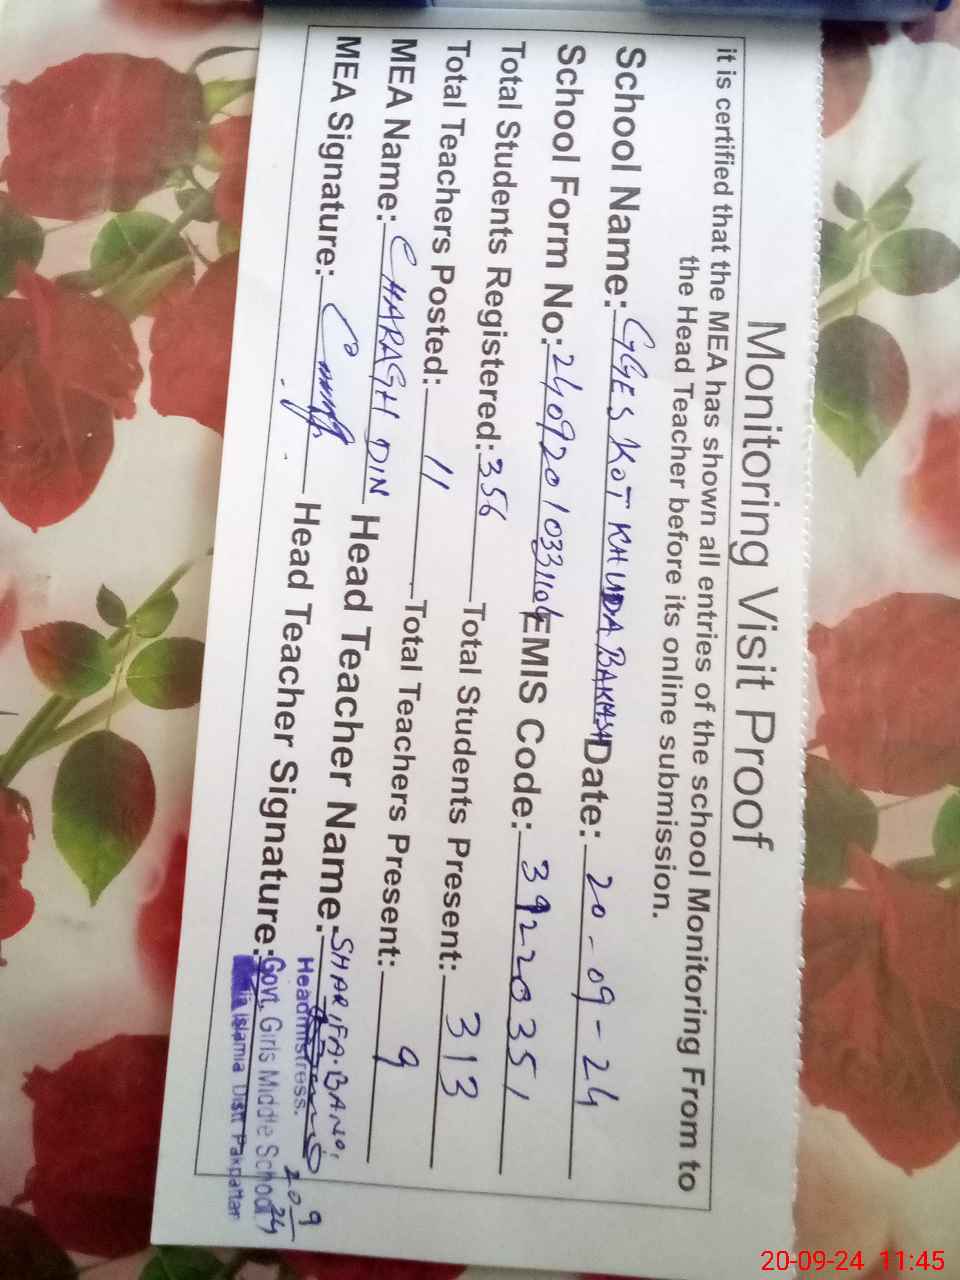 Monitoring Visit Proof
it is certified that the MEA has shown all entries of the school Monitoring From to
the Head Teacher before its online submission.
School Name: GGES KOT KHUDA BAKHSH Date: 20-09-24
School Form No: 2409201033110 EMIS Code: 39220351
Total Students Registered: 356 Total Students Present: 313
Total Teachers Posted: 11 Total Teachers Present: 9
MEA Name: CHARAGH DIN Head Teacher Name: SHARIFA.BANO,
MEA Signature: Head Teacher Signature:
Headmistress.
Govt. Girls Middle School
Islamia Distt Pakpattan
20/9
24
20-09-24 11:45